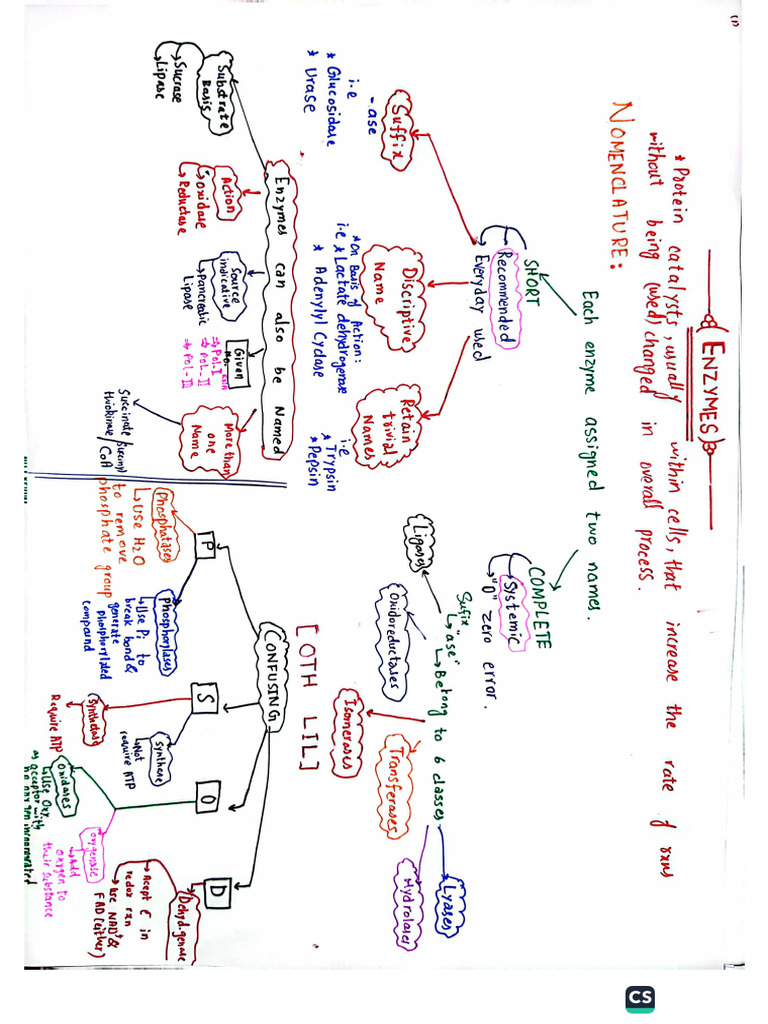 (1)
ENZYMES
* Protein catalysts, usually within cells, that increase the rate of rxns
without being (used) changed in overall process.
NOMENCLATURE:
Each enzyme assigned two names.
SHORT
Recommended
Everyday used
Suffix
-ase
i.e
* Glucosidase
* Urase
Discriptive
Name
* On Basis of Action:
i.e * Lactate dehydrogenase
* Adenylyl Cyclase
Retain
trivial
Names
i.e
* Trypsin
* Pepsin
COMPLETE
Systemic
"0" zero error.
Belong to 6 classes
Sufix "ase"
Ligases
Oxidoreductases
Isomerases
Transferases
Hydrolases
Lyases
[OTH LIL]
Enzymes can also be Named
Substrate
Basis
Sucrase
Lipase
Action
Oxidase
Reductase
Source
indicative
Pancreatic
Lipase
Given
No.
Pol. I
Pol. II
Pol-III
More than
one
Name
Succinate/Succinyl
thiokinase/CoA
CONFUSING
P
Phosphatases
Use H2O
to remove
phosphate group
Phosphorylases
Use Pi to
break bond &
generate
phosphorylated
compound
S
Synthetase
Require ATP
Synthase
Not
require ATP
O
Oxidases
Use Oxy.
as acceptor with
no oxygen incorporated
oxygenase
Add
oxygen to
their substance
D
Dehyd.genase
Acept é in
redox rxn
use NAD+ &
FAD (either)
CS